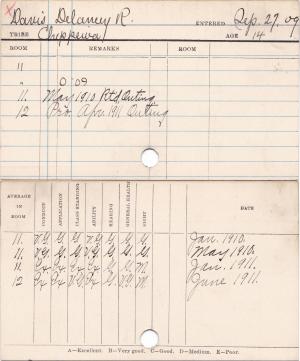 x Davis, Delaney R. ENTERED Sep. 27, 09
TRIBE Chippewa AGE 14
ROOM REMARKS ROOM
11
" O-09
11. May 1910 Rtd Outing
12 Pro. Apr. 1911 Outing
AVERAGE IN ROOM CONDUCT APPLICATION CLASS STANDING ABILITY READING GENERAL HEALTH SIGHT DATE
11. V.G. G. G. V.G. G. G. G. Jan. 1910.
11. V.G. G. G. G. G. G. G. May 1910.
11. Ex Ex G. G. G. G. M. Jan. 1911.
12 Ex Ex V.G. Ex G. V.G. M. June 1911.
A—Excellent. B—Very good. C—Good. D—Medium. E—Poor.